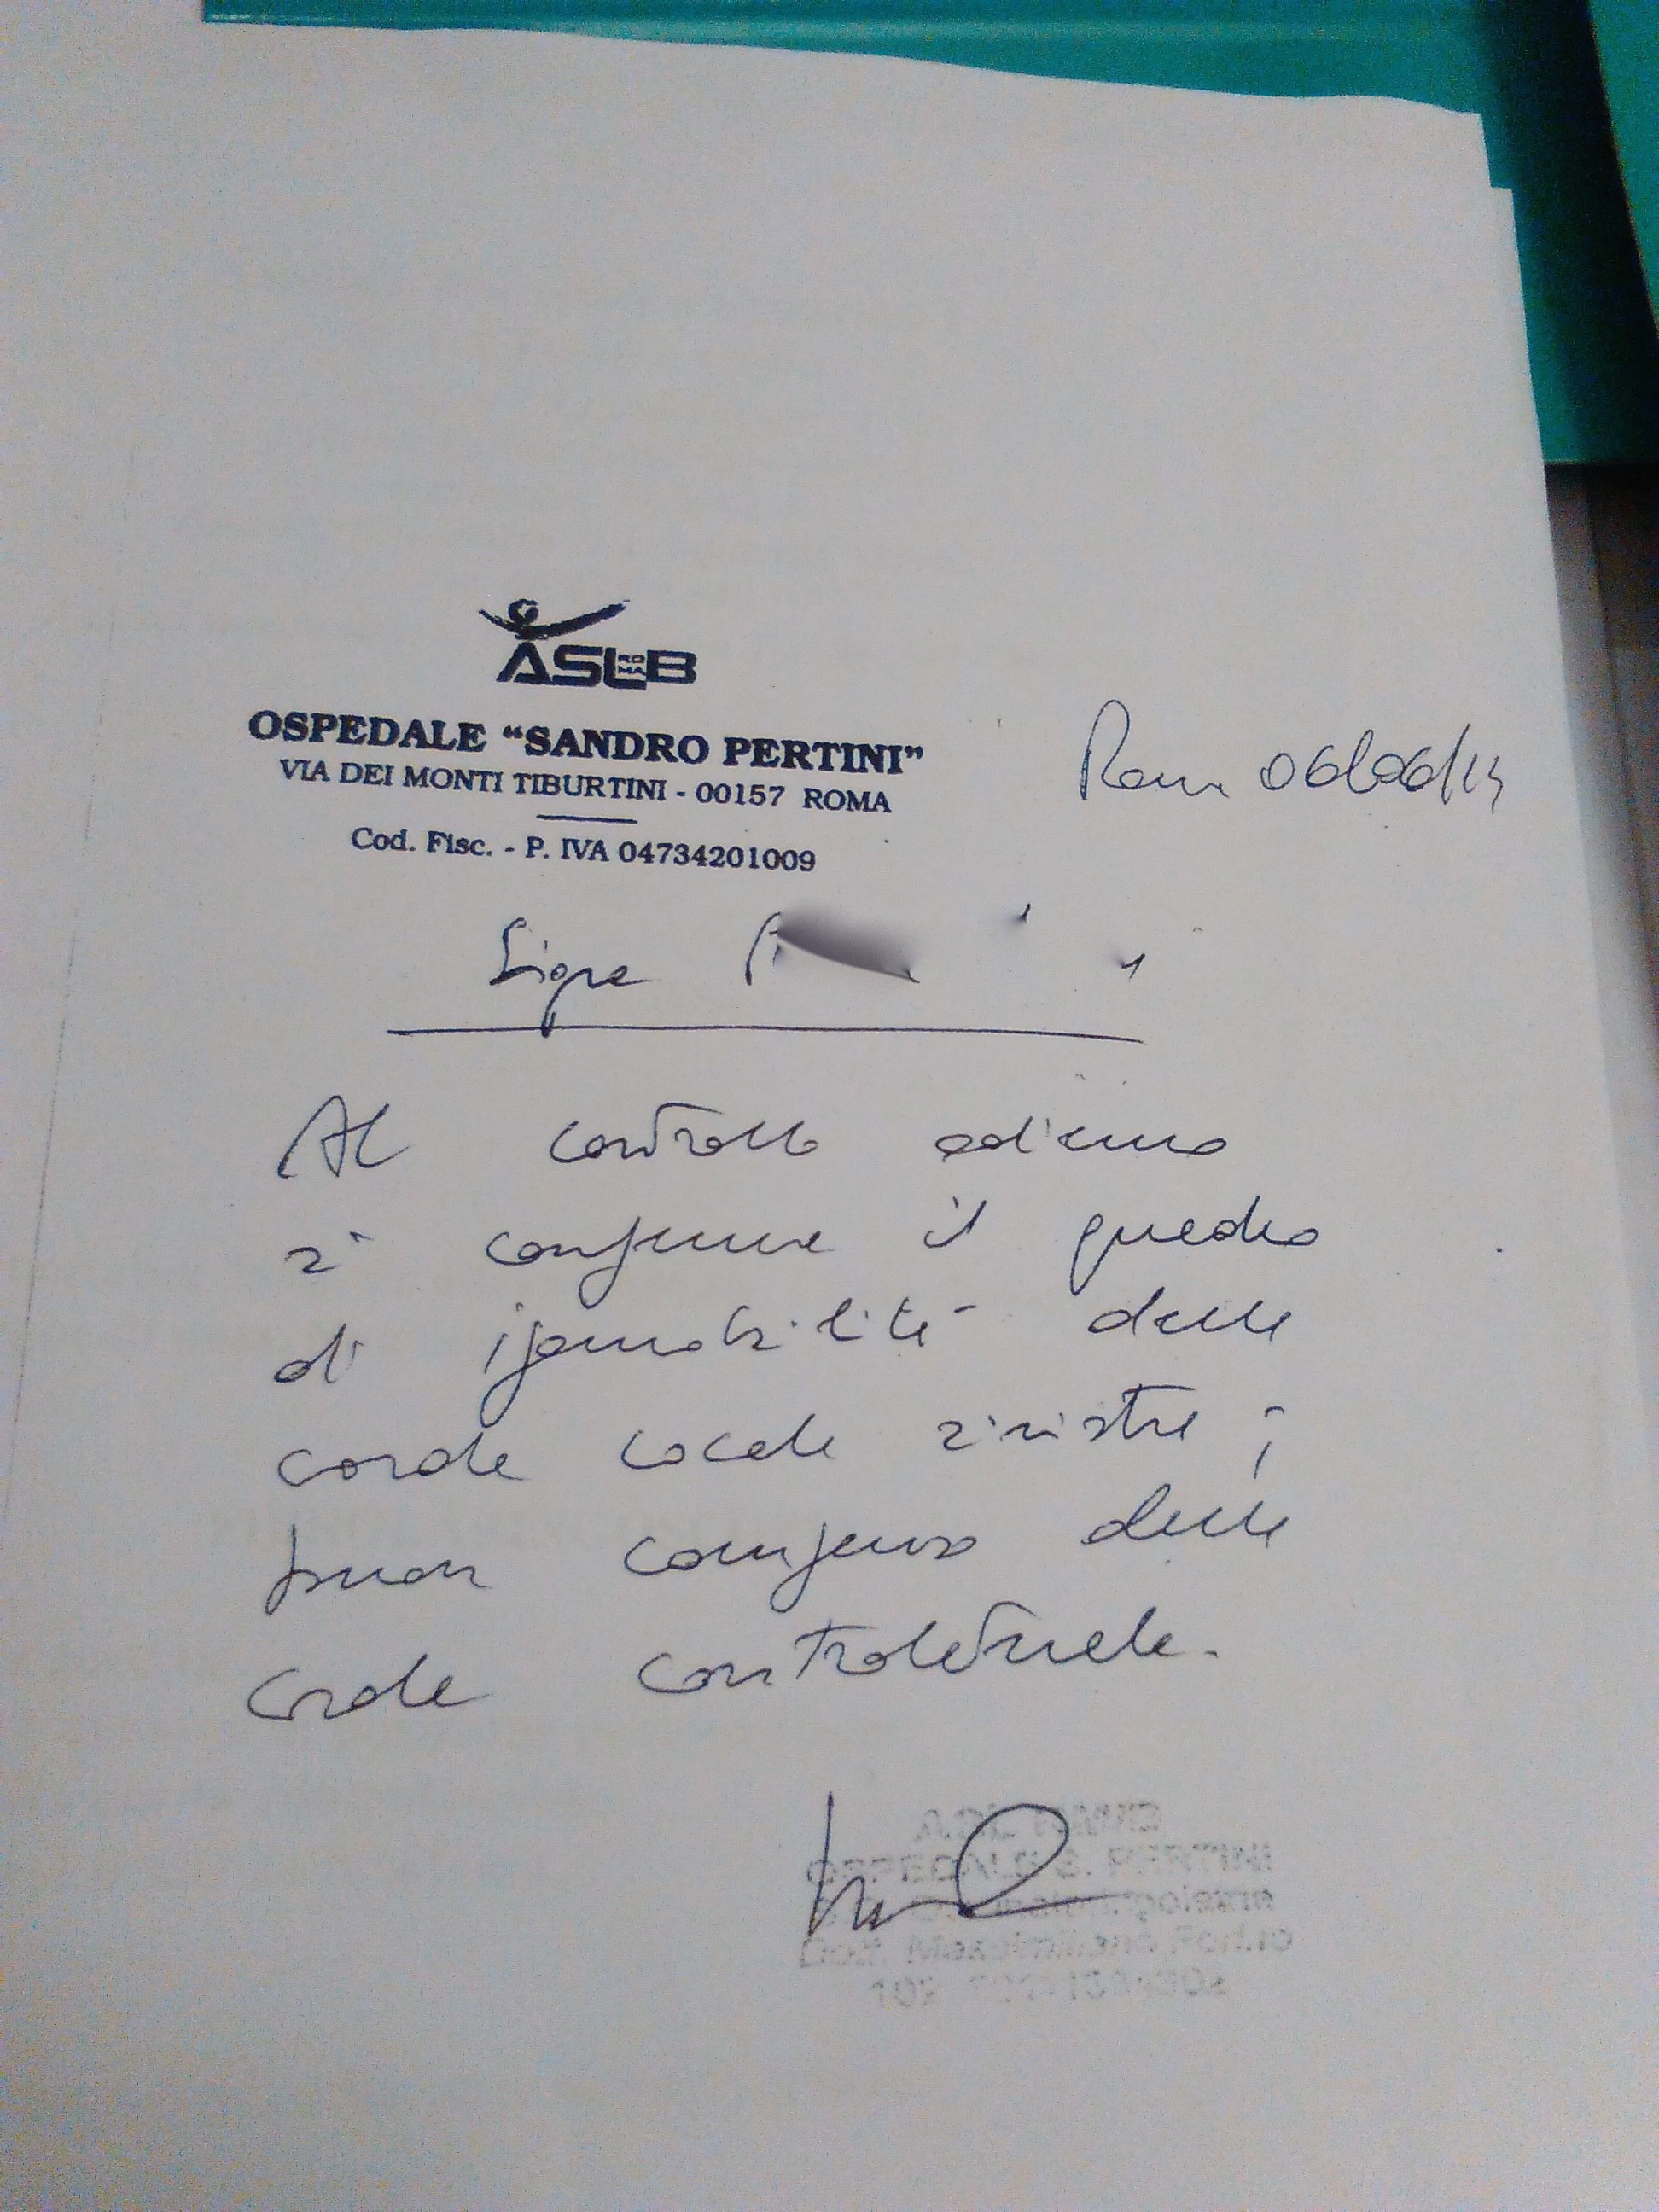 ASL RO MA B
OSPEDALE "SANDRO PERTINI"
VIA DEI MONTI TIBURTINI - 00157 ROMA
Cod. Fisc. - P. IVA 04734201009
Roma 06/06/14
Sig.ra
Al controllo odierno
si conferma il quadro
di ipomobilità della
corda vocale sinistra;
buon compenso della
corda controlaterale.